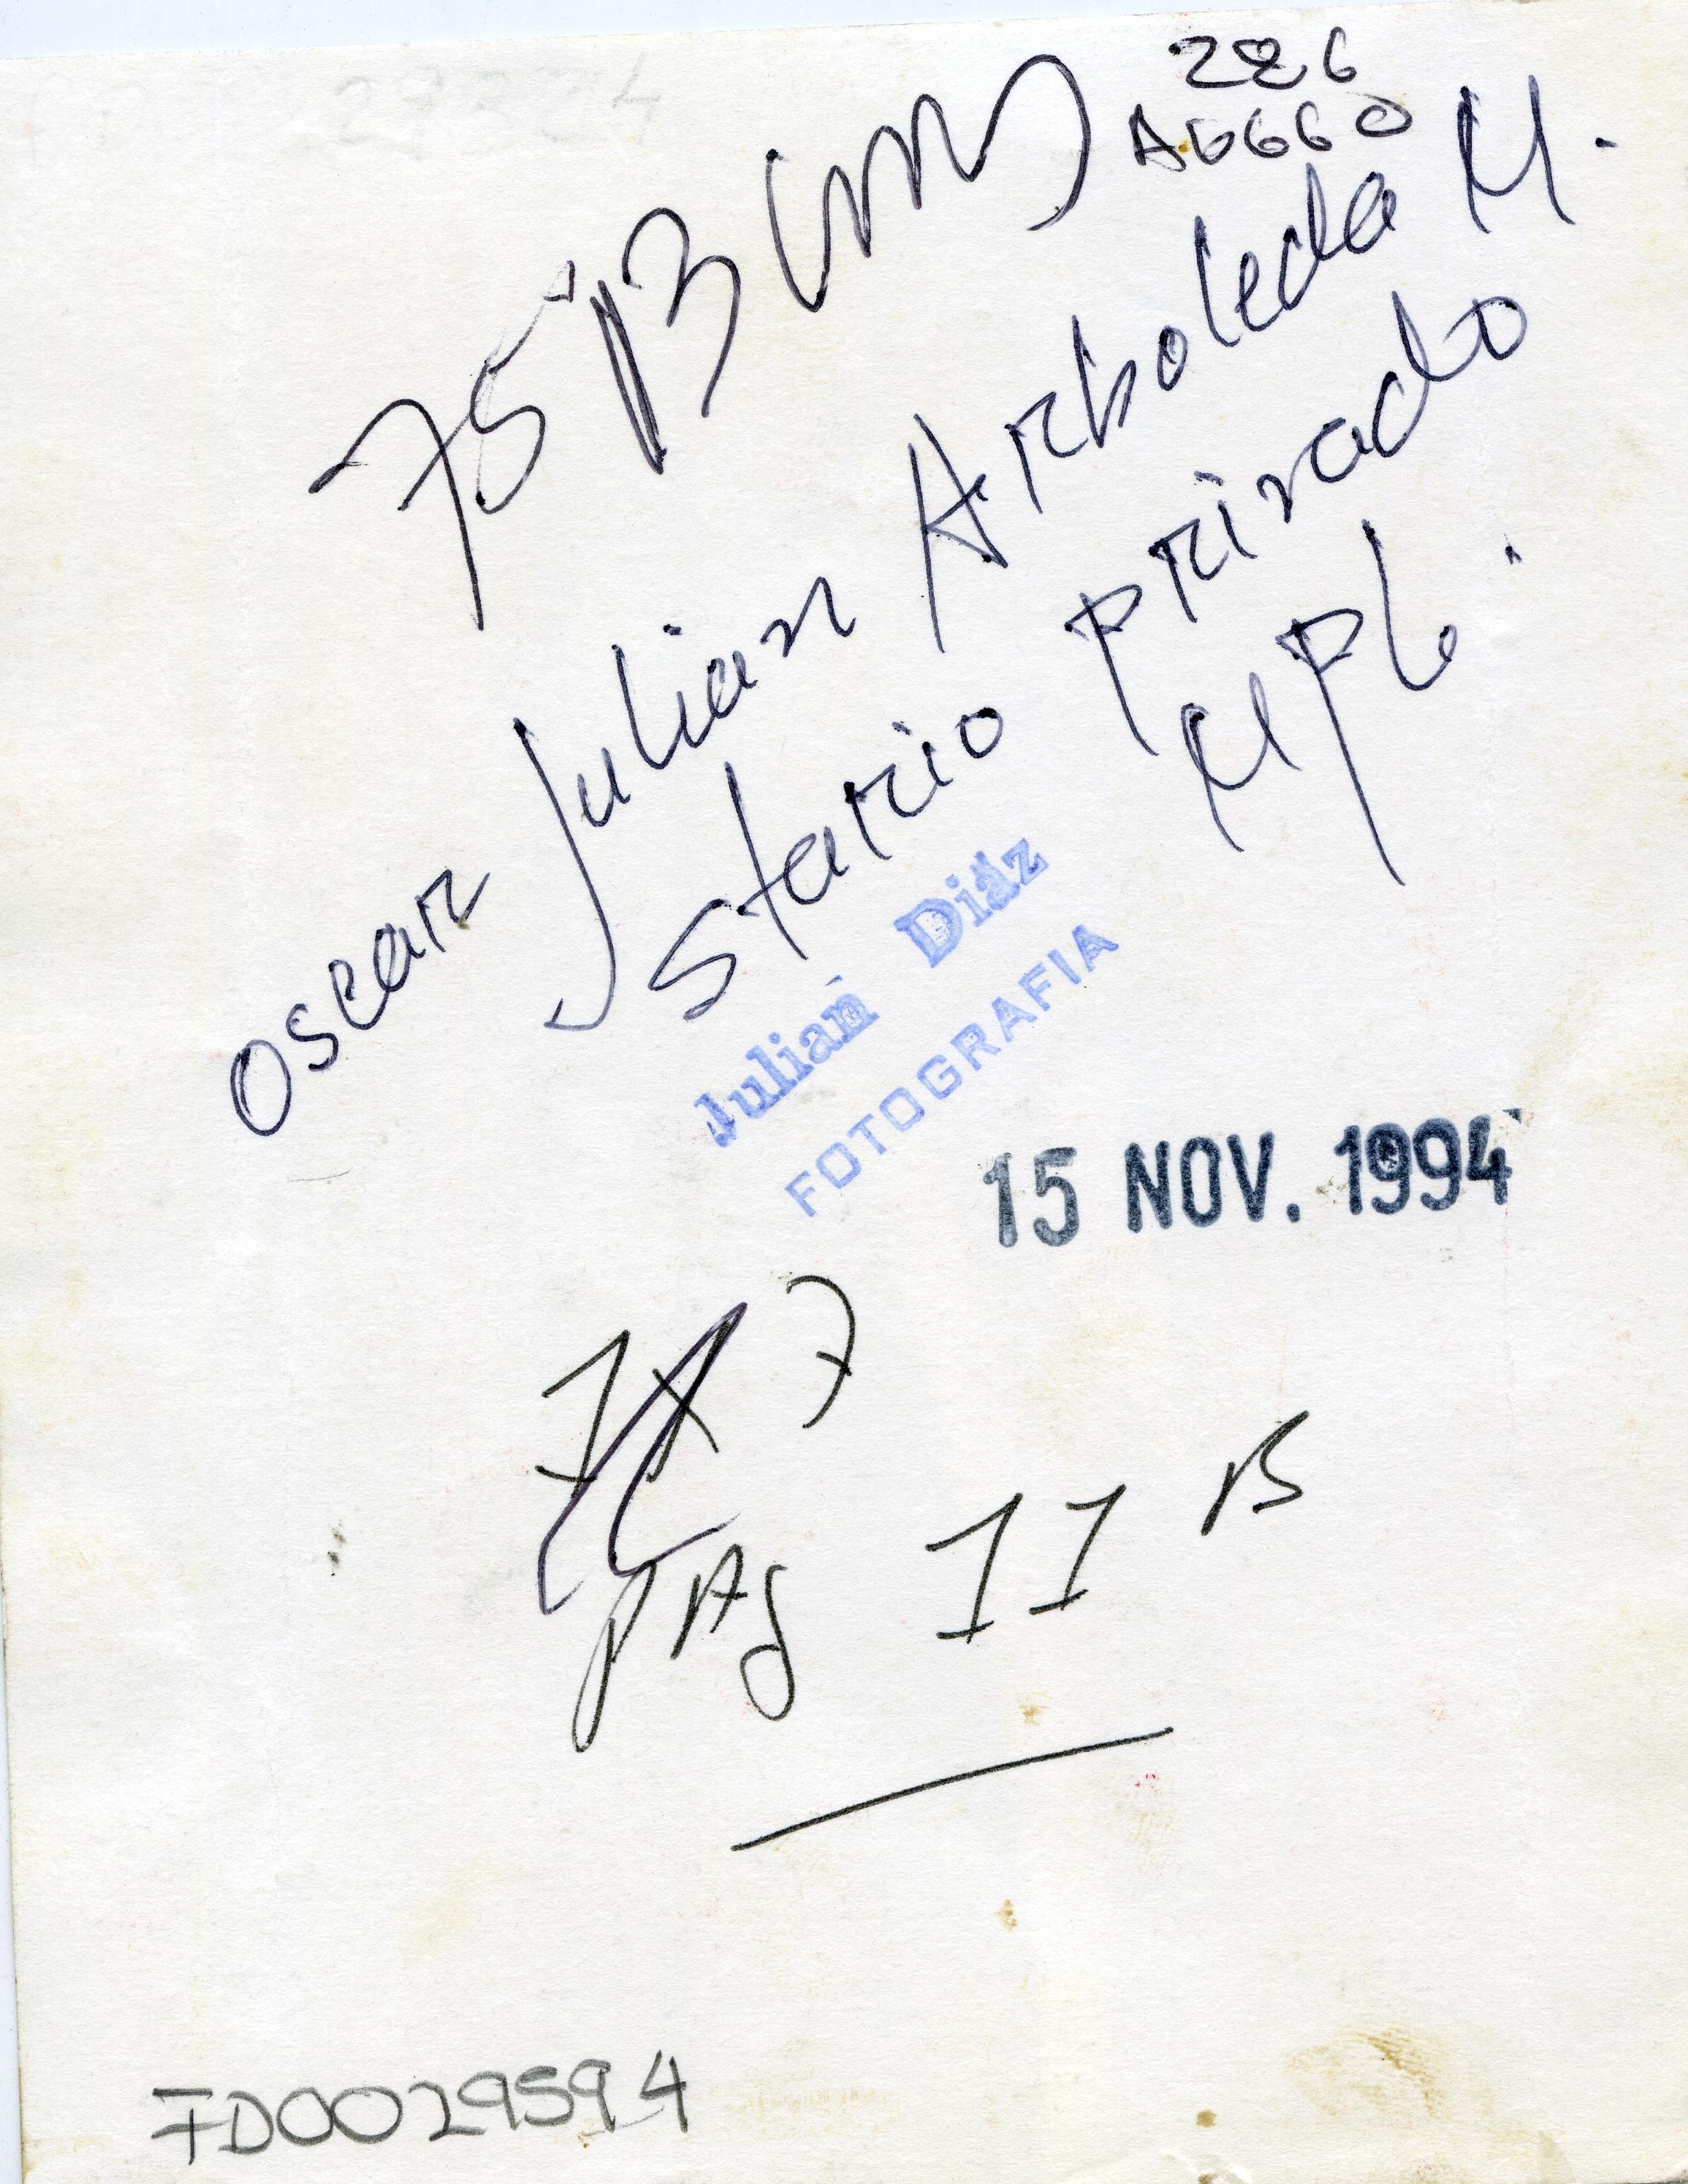 226
A6660
75 B
Oscar Julian Arboleda M.
Stario Privado
MPL.
Julian Diaz
FOTOGRAFIA
15 NOV. 1994
7
PAg 11 B
FD0029594